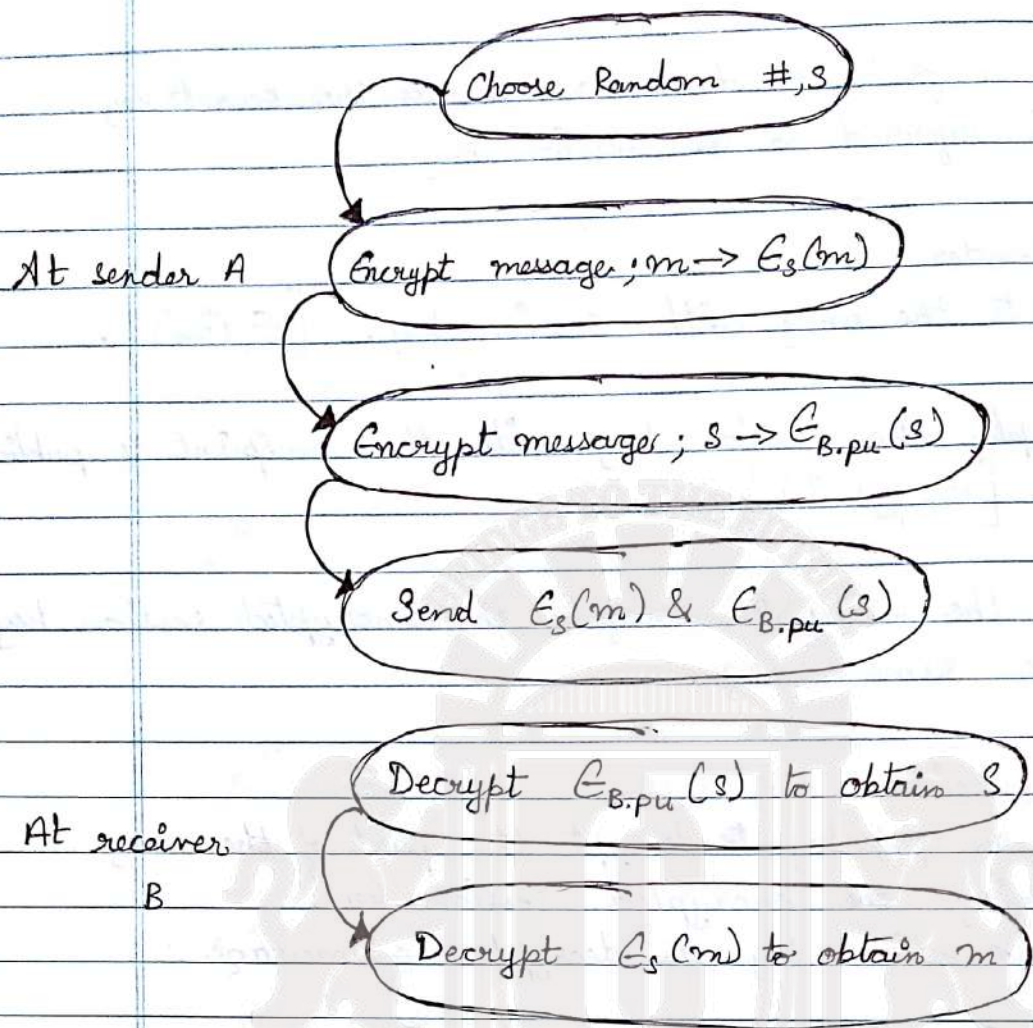 Choose Random #, s
At sender A
Encrypt message ; m → E_s(m)
Encrypt message ; s → E_B.pu (s)
Send E_s(m) & E_B.pu (s)
Decrypt E_B.pu (s) to obtain s
At receiver
B
Decrypt E_s (m) to obtain m